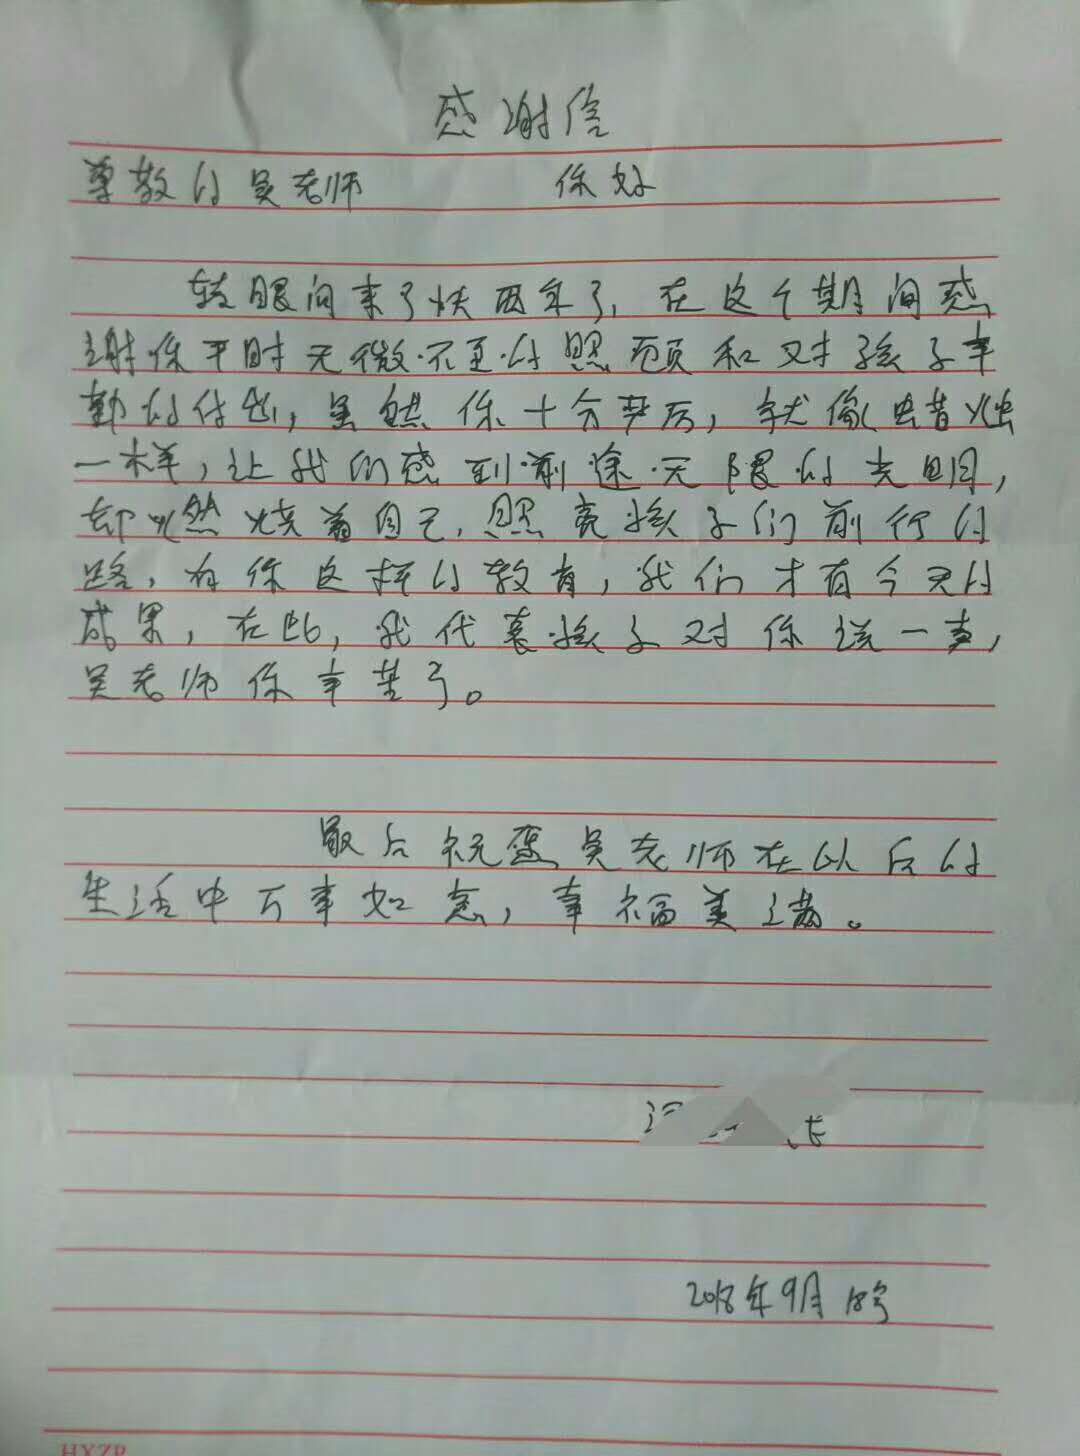 感谢信
尊敬的吴老师 你好
转眼间来了快两年了，在这个期间感
谢你平时无微不至的照顾和对孩子辛
勤的付出，虽然你十分平厉，就像蜡烛
一样，让我们感到前途无限的光明，
却燃烧着自己，照亮孩子们前行的
路，有你这样的教育，我们才有今天的
成果，在此，我代表孩子对你说一声，
吴老师你辛苦了。
最后祝愿吴老师在以后的
生活中万事如意，幸福美满。
2018年9月18号
HXZP